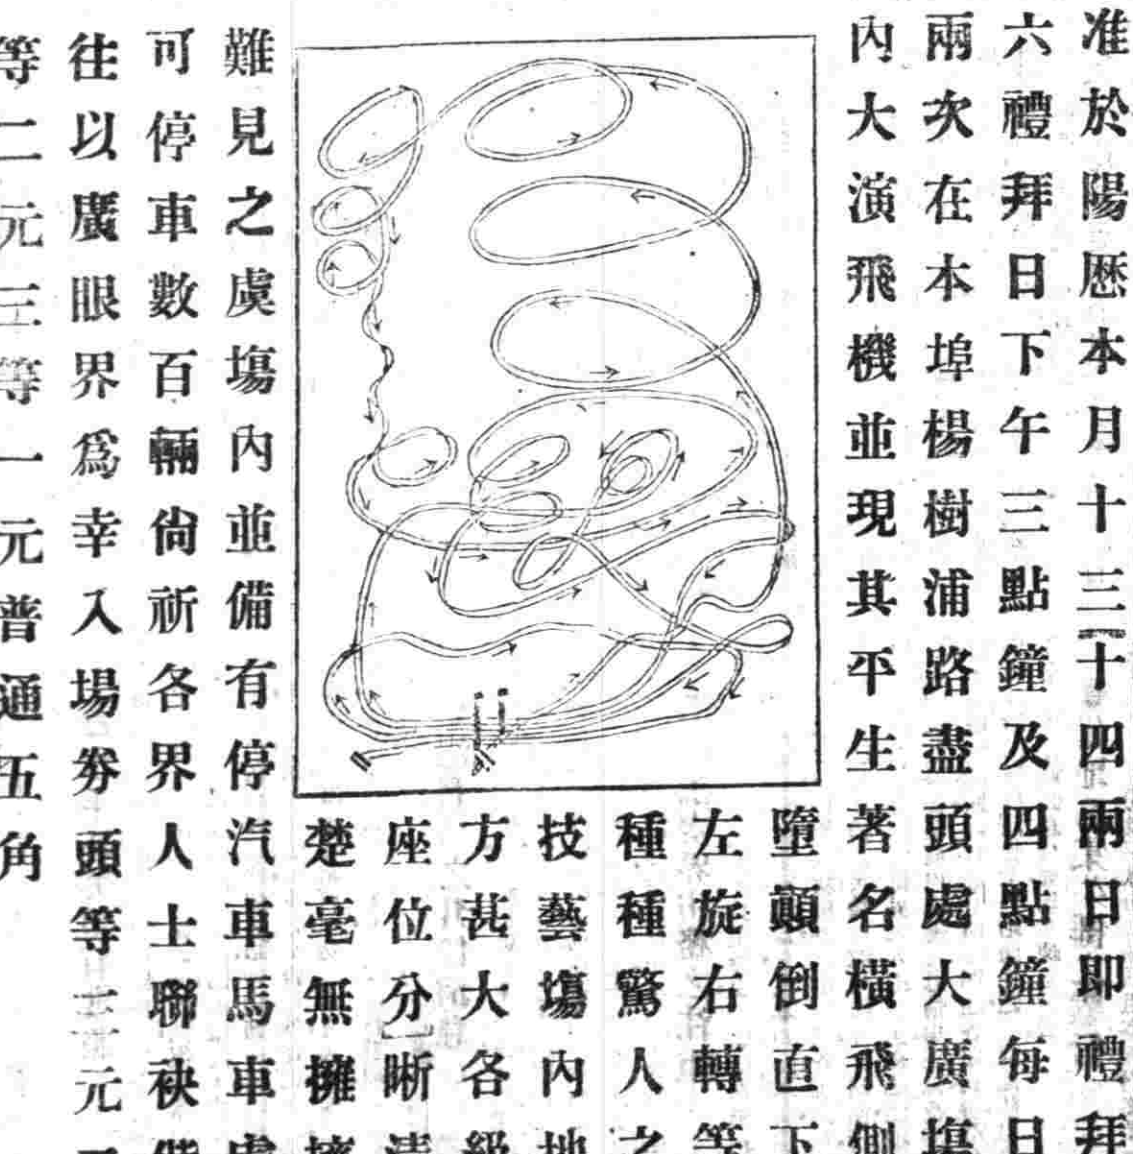 准於陽歷本月十三十四兩日即禮拜
六禮拜日下午三點鐘及四點鐘每日
兩次在本埠楊樹浦路盡頭處大廣塲
內大演飛機並現其平生著名橫飛側
墮顚倒直下
左旋右轉等
種種驚人之
技藝塲內地
方甚大各級
座位分晰清
楚毫無擁擠
難見之虞塲內並備有停汽車馬車處
可停車數百輛尙祈各界人士聯袂偕
往以廣眼界爲幸入場券頭等三元二
等二元三等一元普通五角